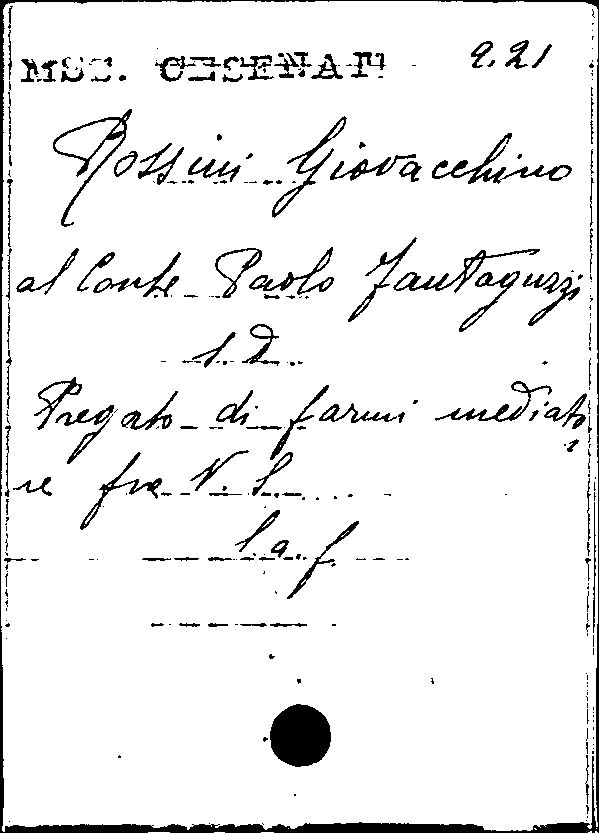 MSS. CESENATI 2.21
Rossini Giovacchino
al Conte Paolo Fantaguzzi
s.d.
Pregato di farmi mediato
re fra N. S.
l. a. f.